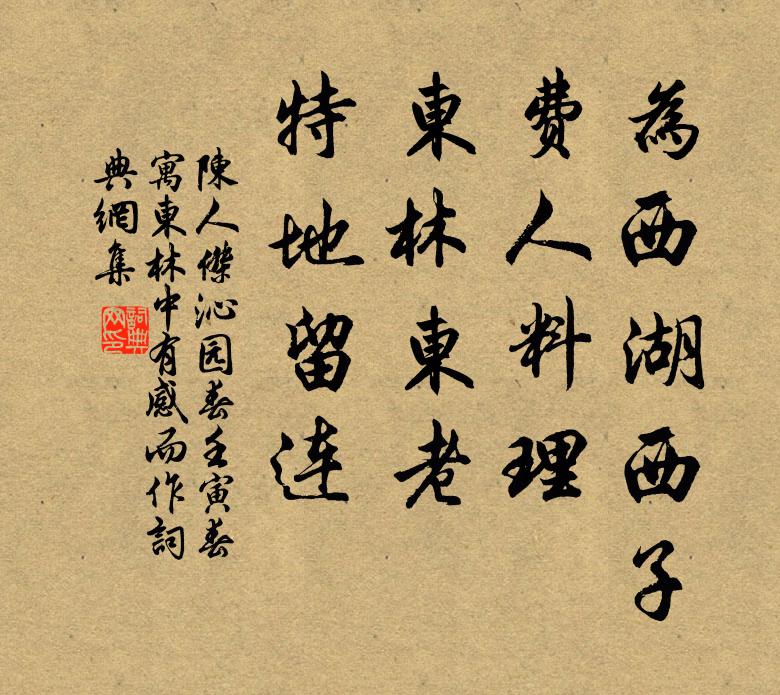 為西湖西子
費人料理
東林東老
特地留连
陳人傑沁园春壬寅春
寓東林中有感而作詞
典網集
詞典
网印